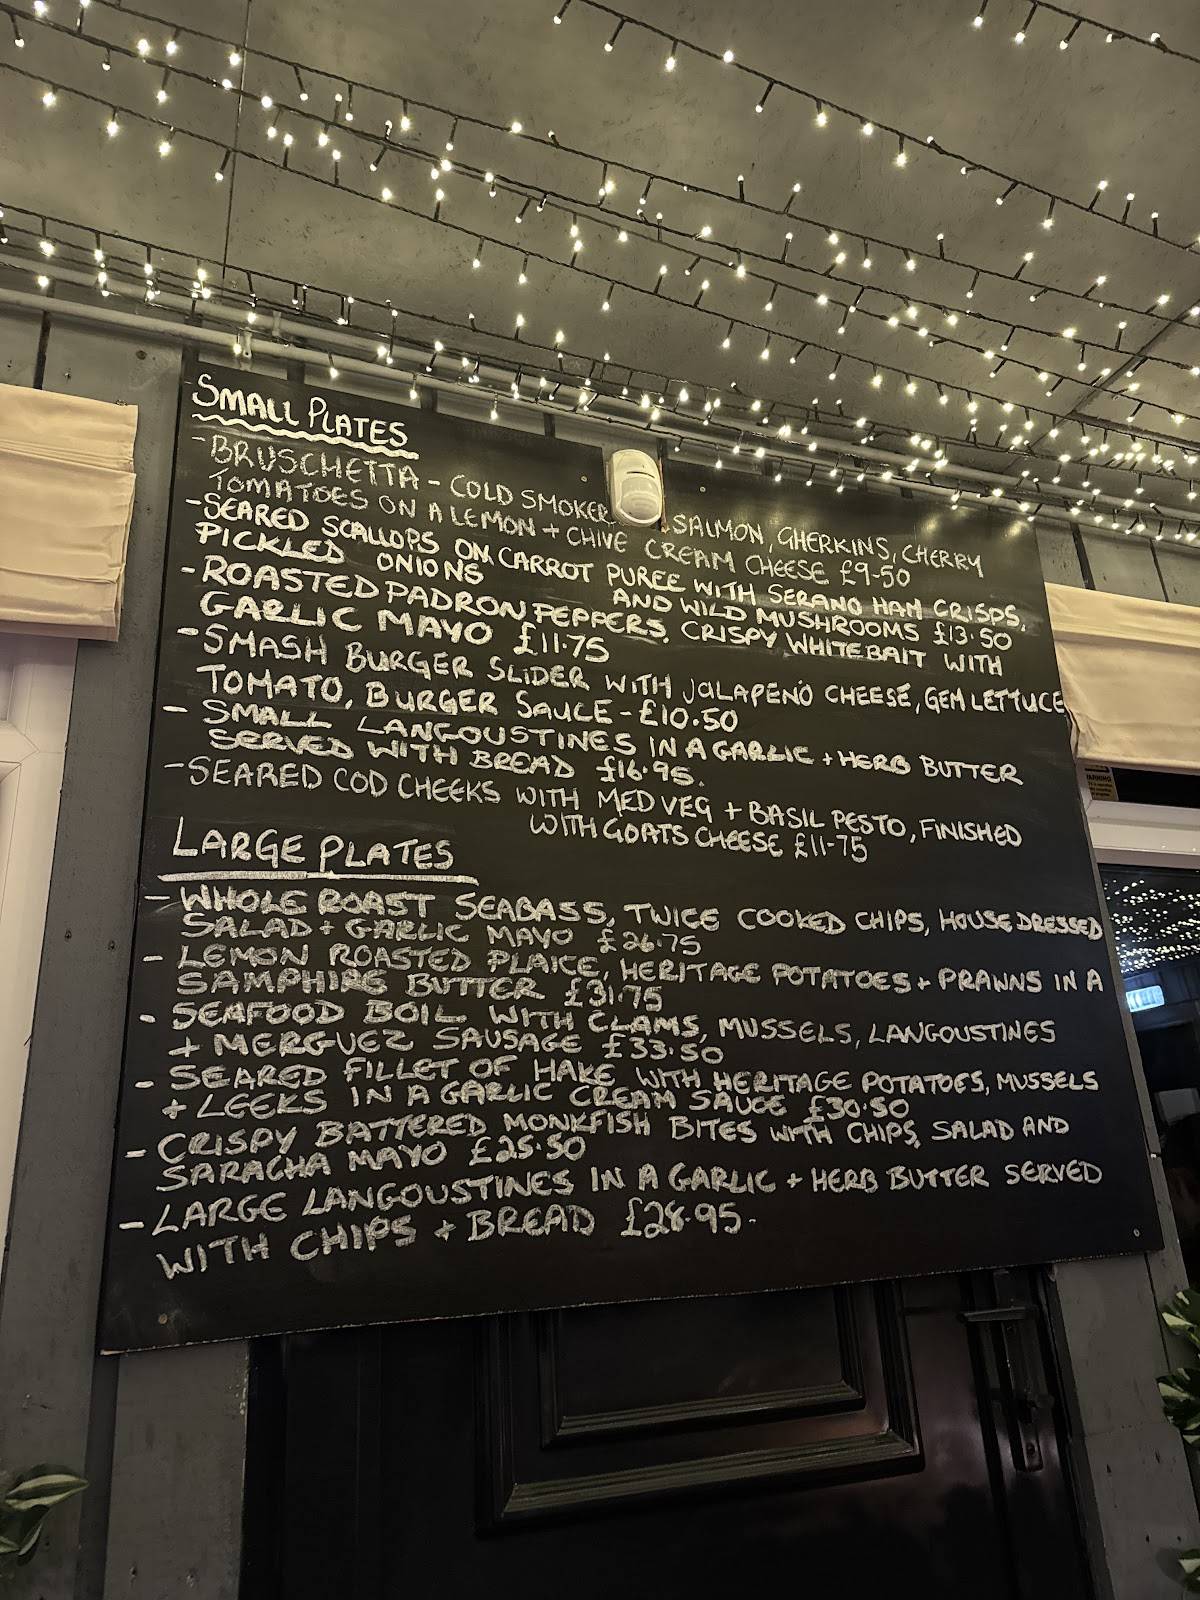 SMALL PLATES
- BRUSCHETTA - COLD SMOKED SALMON, GHERKINS, CHERRY
TOMATOES ON A LEMON + CHIVE CREAM CHEESE £9-50
- SEARED SCALLOPS ON CARROT PUREE WITH SERANO HAM CRISPS,
PICKLED ONIONS AND WILD MUSHROOMS £13.50
- ROASTED PADRON PEPPERS, CRISPY WHITEBAIT WITH
GARLIC MAYO £11.75
- SMASH BURGER SLIDER WITH JALAPENO CHEESE, GEM LETTUCE,
TOMATO, BURGER SAUCE - £10.50
- SMALL LANGOUSTINES IN A GARLIC + HERB BUTTER
SERVED WITH BREAD £16.95.
- SEARED COD CHEEKS WITH MED VEG + BASIL PESTO, FINISHED
WITH GOATS CHEESE £11-75
LARGE PLATES
- WHOLE ROAST SEABASS, TWICE COOKED CHIPS, HOUSE DRESSED
SALAD + GARLIC MAYO £26.75
- LEMON ROASTED PLAICE, HERITAGE POTATOES + PRAWNS IN A
SAMPHIRE BUTTER £31.75
- SEAFOOD BOIL WITH CLAMS, MUSSELS, LANGOUSTINES
+ MERGUEZ SAUSAGE £33.50
- SEARED FILLET OF HAKE WITH HERITAGE POTATOES, MUSSELS
+ LEEKS IN A GARLIC CREAM SAUCE £30.50
- CRISPY BATTERED MONKFISH BITES WITH CHIPS, SALAD AND
SARACHA MAYO £25.50
- LARGE LANGOUSTINES IN A GARLIC + HERB BUTTER SERVED
WITH CHIPS + BREAD £28.95-
WARNING